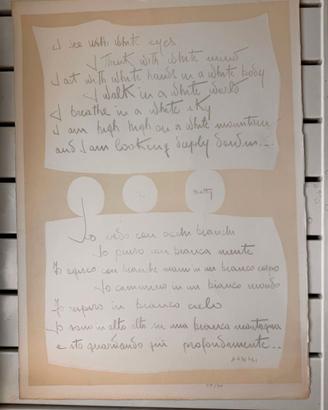 I see with white eyes
I think with white mind
I act with white hands in a white body
I walk in a white world
I breathe in a white sky
I am high high on a white mountain
and I am looking deeply down...
Io vedo con occhi bianchi
Io penso con bianca mente
Io agisco con bianche mani in un bianco corpo
Io cammino in un bianco mondo
Io respiro in bianco cielo
Io sono in alto alto su una bianca montagna
e sto guardando giù profondamente...